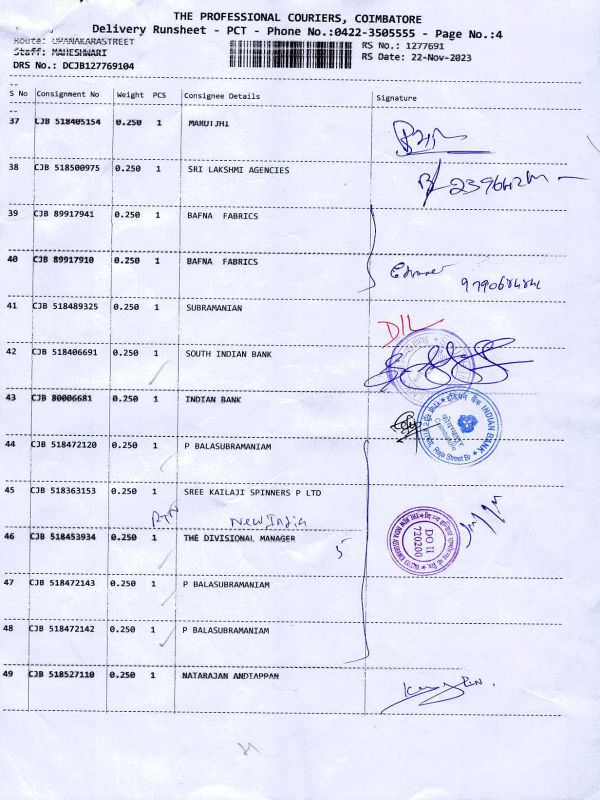 THE PROFESSIONAL COURIERS, COIMBATORE
Delivery Runsheet - PCT - Phone No.:0422-3505555 - Page No.:4
Route: UPANAKARASTREET
RS No.: 1277691
Staff: MAHESHWARI
RS Date: 22-Nov-2023
DRS No.: DCJB127769104
S No Consignment No Weight PCS Consignee Details Signature
37 CJB 518405154 0.250 1 MARUTJHI
38 CJB 518500975 0.250 1 SRI LAKSHMI AGENCIES
39 CJB 89917941 0.250 1 BAFNA FABRICS
40 CJB 89917910 0.250 1 BAFNA FABRICS
41 CJB 518489325 0.250 1 SUBRAMANIAN
D/L
42 CJB 518406691 0.250 1 SOUTH INDIAN BANK
43 CJB 80006681 0.250 1 INDIAN BANK
इंडियन बैंक INDIAN BANK
कोयम्बत्तूर
Coimbatore
Raja Street Br
44 CJB 518472120 0.250 1 P BALASUBRAMANIAM
45 CJB 518363153 0.250 1 SREE KAILAJI SPINNERS P LTD
RTN New India
46 CJB 518453934 0.250 1 THE DIVISIONAL MANAGER 5
DO II
720200
47 CJB 518472143 0.250 1 P BALASUBRAMANIAM
48 CJB 518472142 0.250 1 P BALASUBRAMANIAM
49 CJB 518527110 0.250 1 NATARAJAN ANDIAPPAN